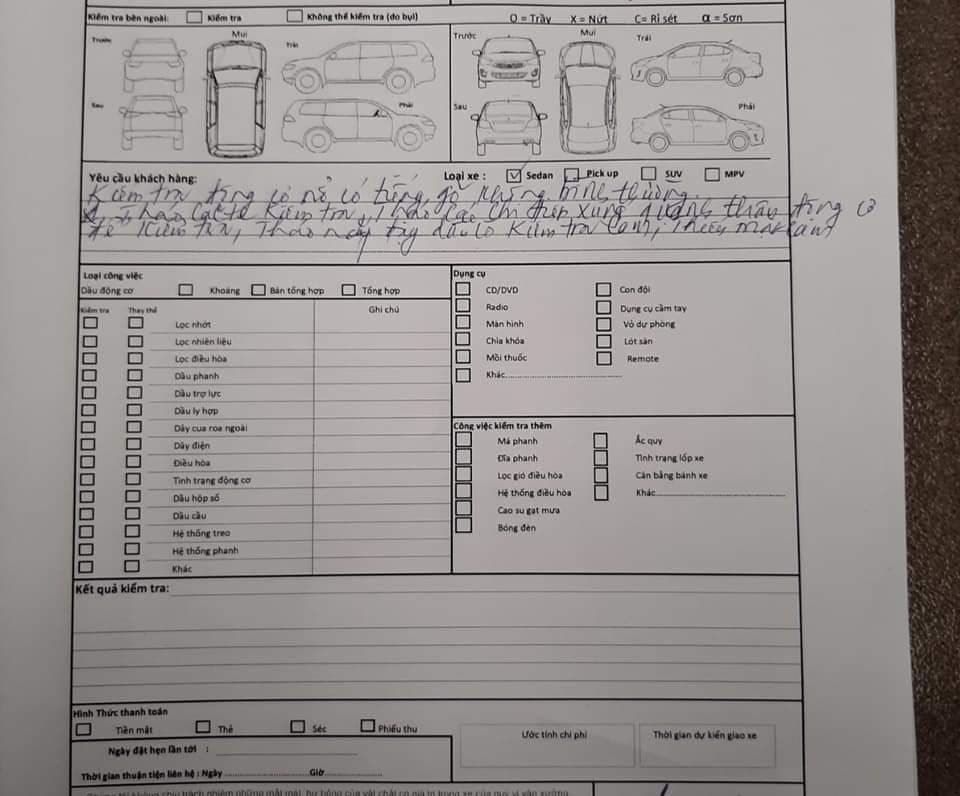 Kiểm tra bên ngoài: Kiểm tra Không thể kiểm tra (do bụi) O = Trầy X = Nứt C= Rỉ sét α = Sơn
Trước Mui Trái Trước Mui Trái
Sau Phải Sau Phải
Yêu cầu khách hàng: Loại xe : Sedan Pick up SUV MPV
Kiểm tra động cơ nổ có tiếng gõ, không bình thường.
tháo cạt te kiểm tra, Tháo các chi tiết xung quanh thân động cơ
để kiểm tra, Tháo máy kiểm tra
Loại công việc
Dầu động cơ Khoáng Bán tổng hợp Tổng hợp
Kiểm tra Thay thế Ghi chú
Lọc nhớt
Lọc nhiên liệu
Lọc điều hòa
Dầu phanh
Dầu trợ lực
Dầu ly hợp
Dây cua roa ngoài
Dây điện
Điều hòa
Tình trạng động cơ
Dầu hộp số
Dầu cầu
Hệ thống treo
Hệ thống phanh
Khác
Dụng cụ
CD/DVD Con đội
Radio Dụng cụ cầm tay
Màn hình Vỏ dự phòng
Chìa khóa Lót sàn
Mồi thuốc Remote
Khác
Công việc kiểm tra thêm
Má phanh Ắc quy
Đĩa phanh Tình trạng lốp xe
Lọc gió điều hòa Cân bằng bánh xe
Hệ thống điều hòa Khác
Cao su gạt mưa
Bóng đèn
Kết quả kiểm tra:
Hình Thức thanh toán
Tiền mặt Thẻ Séc Phiếu thu
Ngày đặt hẹn lần tới :
Thời gian thuận tiện liên hệ : Ngày Giờ
Ước tính chi phí Thời gian dự kiến giao xe
chịu trách nhiệm những mất mát, hư hỏng của vật chất có giá trị trong xe của quý vị vào xưởng